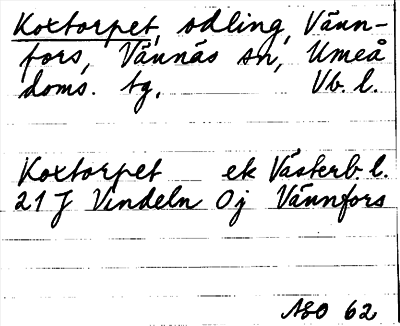 Koxtorpet, odling, Vänn-
fors, Vännäs sn, Umeå
doms. tg. Vb. l.
Koxtorpet ek Västerb. l.
21 J Vindeln 0j Vännfors
NSO 62